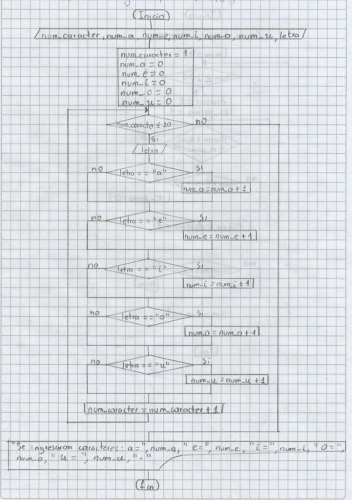 Inicio
num_caracter, num_a, num_e, num_i, num_o, num_u, letra
num_caracter = 1
num_a = 0
num_e = 0
num_i = 0
num_o = 0
num_u = 0
num_caracter ≤ 20
no
Si
letra
no
letra == "a"
Si
num_a = num_a + 1
no
letra == "e"
Si
num_e = num_e + 1
no
letra == "i"
Si
num_i = num_i + 1
no
letra == "o"
Si
num_o = num_o + 1
no
letra == "u"
Si
num_u = num_u + 1
num_caracter = num_caracter + 1
"Se ingresaron caracteres: a=", num_a, "e=", num_e, "i=", num_i, "o=",
num_o, "u=", num_u, "."
fin